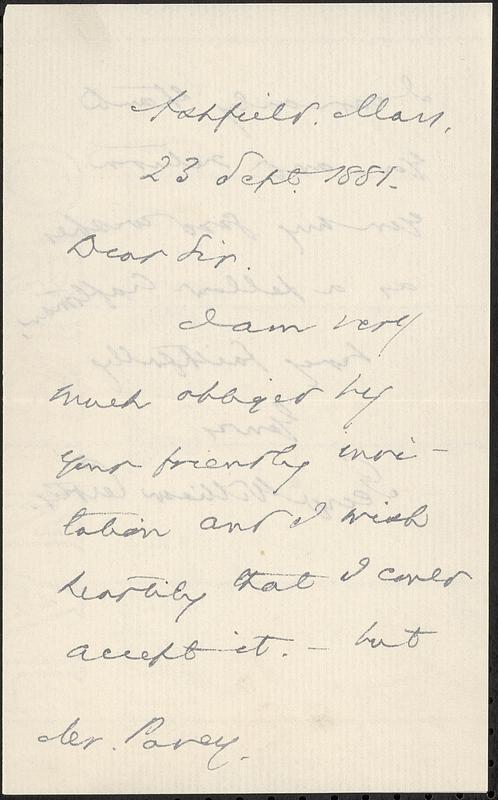 Ashfield. Mass.
23 Sept. 1881.
Dear Sir.
I am very
much obliged by
your friendly invi-
tation and I wish
heartily that I could
accept it. – but
Mr. Pavey.